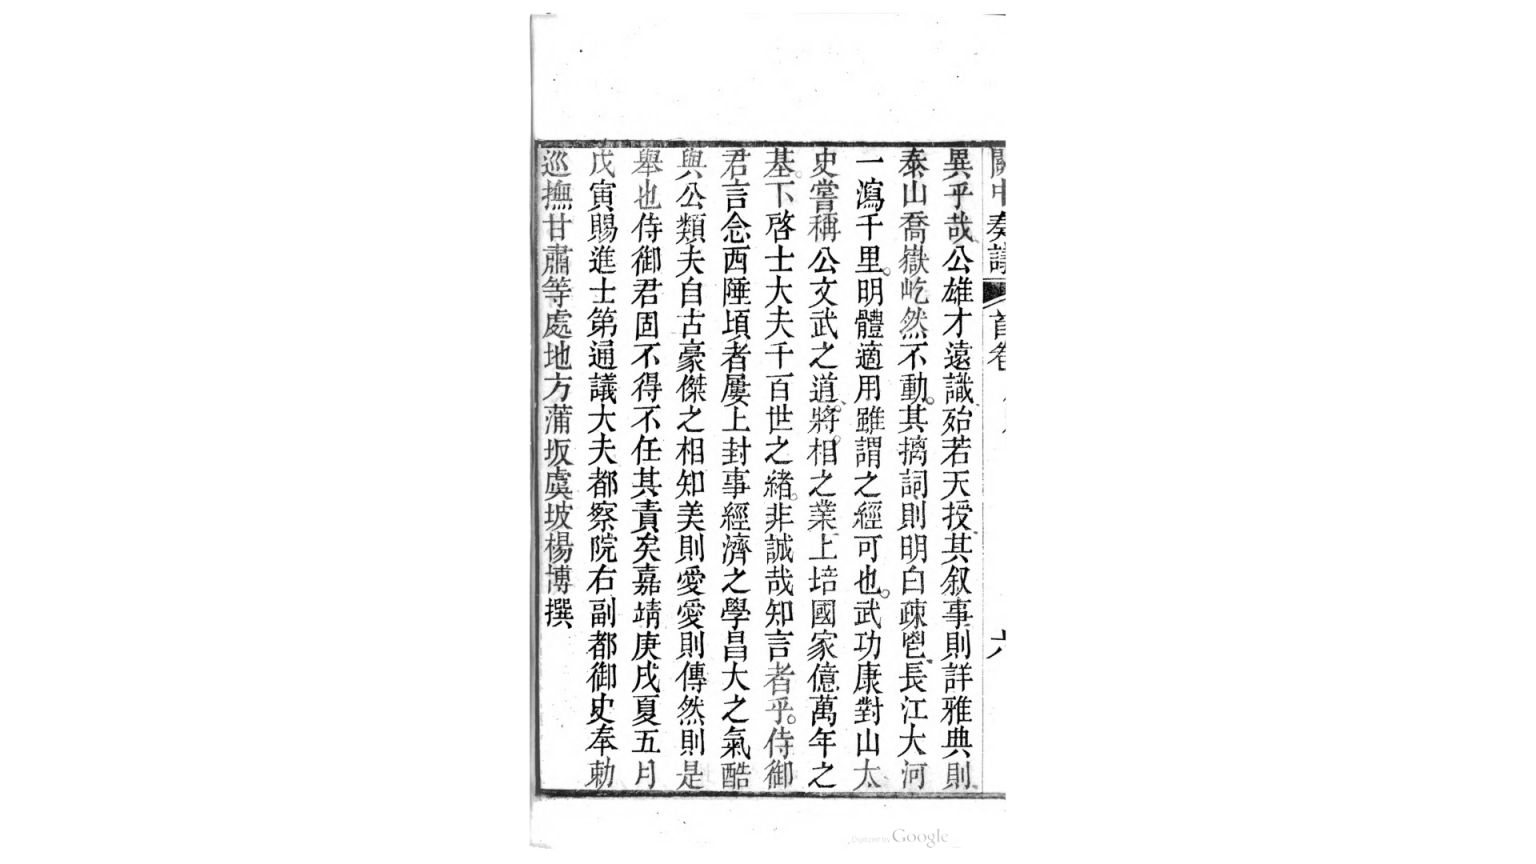 關中奏議 首卷 六
異乎哉公雄才遠識殆若天授其叙事則詳雅典則
泰山喬嶽屹然不動其摛詞則明白疎鬯長江大河
一瀉千里明體適用雖謂之經可也武功康對山太
史嘗稱公文武之道將相之業上培國家億萬年之
基下啓士大夫千百世之緒非誠哉知言者乎侍御
君言念西陲頃者屢上封事經濟之學昌大之氣酷
與公類夫自古豪傑之相知美則愛愛則傳然則是
舉也侍御君固不得不任其責矣嘉靖庚戌夏五月
戊寅賜進士第通議大夫都察院右副都御史奉勅
巡撫甘肅等處地方蒲坂虞坡楊博撰
Digitized by Google